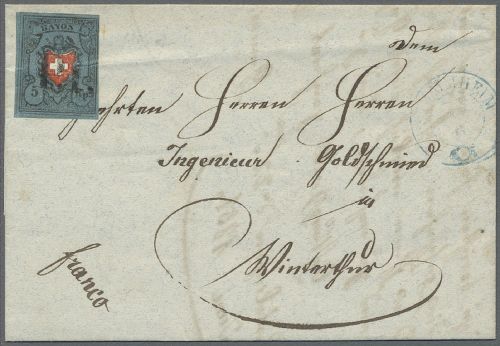 RAYON
5
Dem
Herren Herren
Ingenieur Goldschmied
in
Winterthur
franco